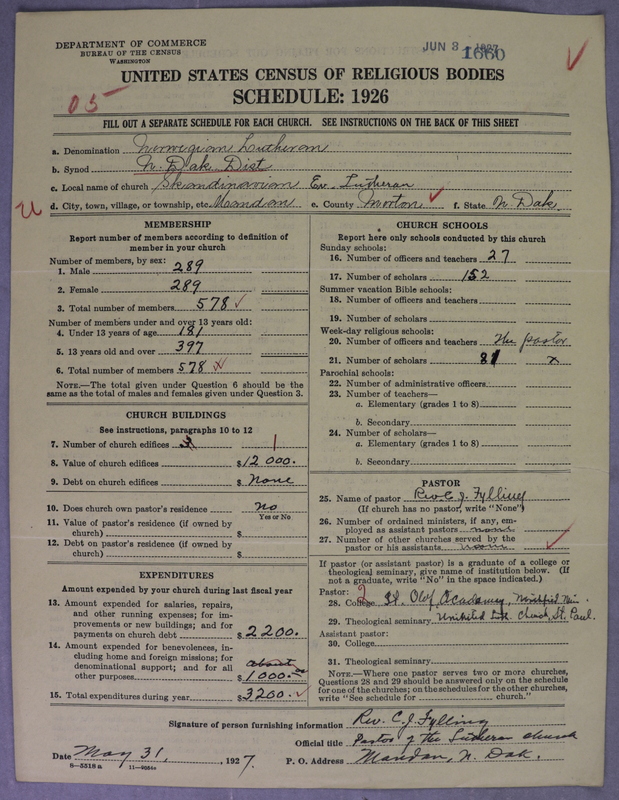 DEPARTMENT OF COMMERCE
BUREAU OF THE CENSUS
WASHINGTON
JUN 3 1927
1660
UNITED STATES CENSUS OF RELIGIOUS BODIES
SCHEDULE: 1926
05
FILL OUT A SEPARATE SCHEDULE FOR EACH CHURCH. SEE INSTRUCTIONS ON THE BACK OF THIS SHEET
a. Denomination Norwegian Lutheran
b. Synod N. Dak Dist
c. Local name of church Skandinavian Ev. Lutheran
U d. City, town, village, or township, etc. Mandan e. County Morton f. State N Dak.
MEMBERSHIP
Report number of members according to definition of
member in your church
Number of members, by sex:
1. Male 289
2. Female 289
3. Total number of members 578
Number of members under and over 13 years old:
4. Under 13 years of age 181
5. 13 years old and over 397
6. Total number of members 578
NOTE.—The total given under Question 6 should be the
same as the total of males and females given under Question 3.
CHURCH BUILDINGS
See instructions, paragraphs 10 to 12
7. Number of church edifices 1
8. Value of church edifices $12000.
9. Debt on church edifices $ None
10. Does church own pastor's residence? No
Yes or No
11. Value of pastor's residence (if owned by
church) $
12. Debt on pastor's residence (if owned by
church) $
EXPENDITURES
Amount expended by your church during last fiscal year
13. Amount expended for salaries, repairs,
and other running expenses; for im-
provements or new buildings; and for
payments on church debt $2200.
14. Amount expended for benevolences, in-
cluding home and foreign missions; for
denominational support; and for all about
other purposes $1000.
15. Total expenditures during year $3200.
CHURCH SCHOOLS
Report here only schools conducted by this church
Sunday schools:
16. Number of officers and teachers 27
17. Number of scholars 152
Summer vacation Bible schools:
18. Number of officers and teachers
19. Number of scholars
Week-day religious schools:
20. Number of officers and teachers The pastor
21. Number of scholars 81 x
Parochial schools:
22. Number of administrative officers
23. Number of teachers—
a. Elementary (grades 1 to 8)
b. Secondary
24. Number of scholars—
a. Elementary (grades 1 to 8)
b. Secondary
PASTOR
25. Name of pastor Rev C. J. Fylling
(If church has no pastor, write "None")
26. Number of ordained ministers, if any, em-
ployed as assistant pastors none
27. Number of other churches served by the
pastor or his assistants none
If pastor (or assistant pastor) is a graduate of a college or
theological seminary, give name of institution below. (If
not a graduate, write "No" in the space indicated.)
Pastor: 2
28. College St. Olof Academy, Northfield Min.
29. Theological seminary United Luth. Church, St. Paul.
Assistant pastor:
30. College
31. Theological seminary
NOTE.—Where one pastor serves two or more churches,
Questions 28 and 29 should be answered only on the schedule
for one of the churches; on the schedules for the other churches,
write "See schedule for church."
Signature of person furnishing information Rev. C. J. Fylling
Official title Pastor of the Lutheran church
Date May 31, 1927. P. O. Address Mandan, N. Dak.
8—5518 a 11—9684